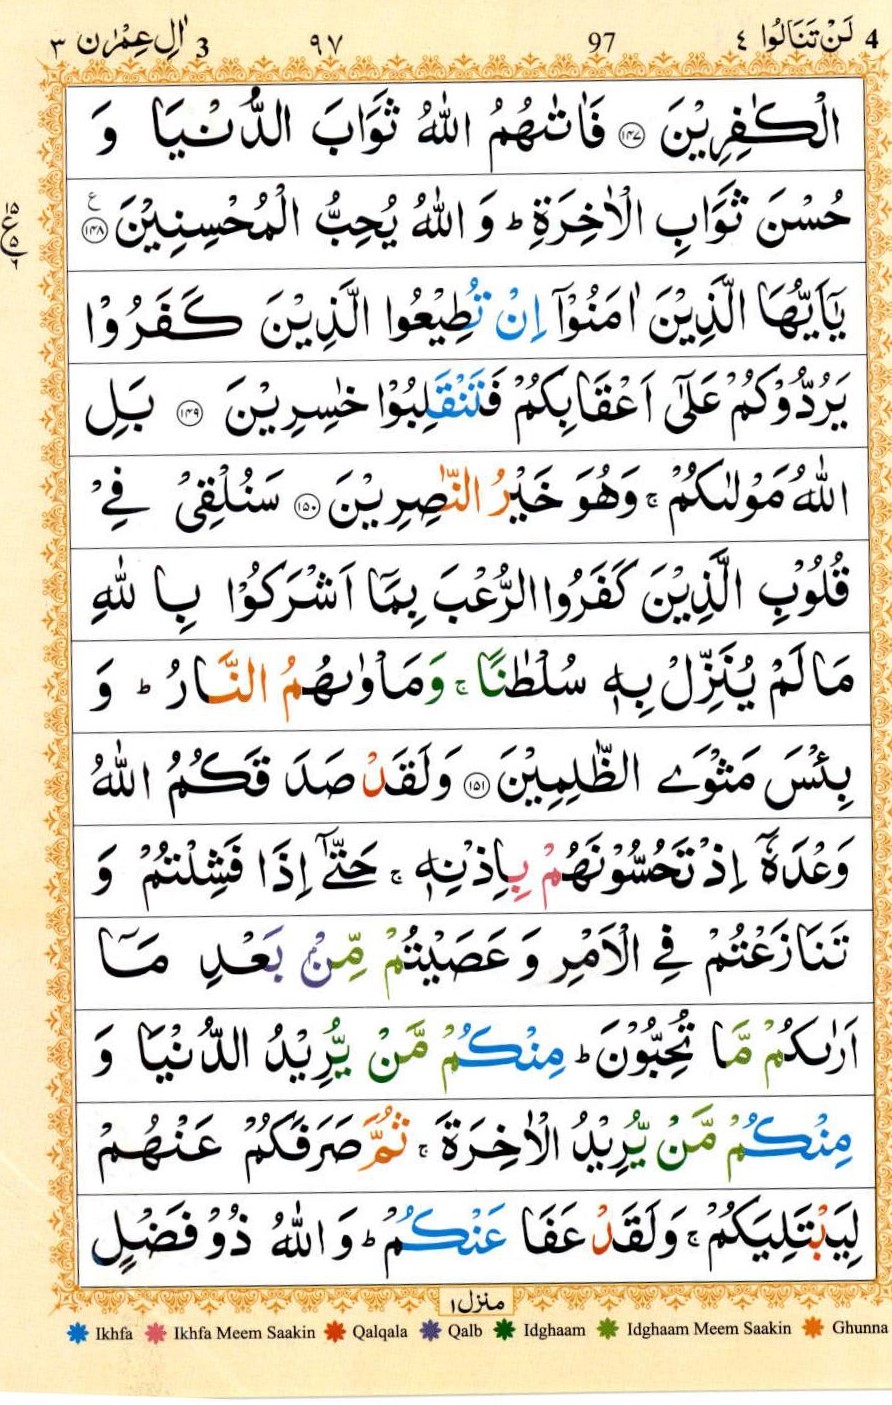 4 لَنْ تَنَالُوا ٤ 97 ٩٧ 3 اٰلِ عِمْرٰن ٣
الْكٰفِرِيْنَ ﴿١٤٧﴾ فَاٰتٰىهُمُ اللّٰهُ ثَوَابَ الدُّنْيَا وَ
حُسْنَ ثَوَابِ الْاٰخِرَةِ ؕ وَ اللّٰهُ يُحِبُّ الْمُحْسِنِيْنَ ﴿١٤٨﴾ ع
يٰۤاَيُّهَا الَّذِيْنَ اٰمَنُوْۤا اِنْ تُطِيْعُوا الَّذِيْنَ كَفَرُوْا
يَرُدُّوْكُمْ عَلٰۤى اَعْقَابِكُمْ فَتَنْقَلِبُوْا خٰسِرِيْنَ ﴿١٤٩﴾ بَلِ
اللّٰهُ مَوْلٰىكُمْ ۚ وَهُوَ خَيْرُ النّٰصِرِيْنَ ﴿١٥٠﴾ سَنُلْقِيْ فِيْ
قُلُوْبِ الَّذِيْنَ كَفَرُوا الرُّعْبَ بِمَاۤ اَشْرَكُوْا بِاللّٰهِ
مَا لَمْ يُنَزِّلْ بِهٖ سُلْطٰنًا ۚ وَمَاْوٰىهُمُ النَّارُ ؕ وَ
بِئْسَ مَثْوَى الظّٰلِمِيْنَ ﴿١٥١﴾ وَلَقَدْ صَدَقَكُمُ اللّٰهُ
وَعْدَهٗۤ اِذْ تَحُسُّوْنَهُمْ بِاِذْنِهٖ ۚ حَتّٰۤى اِذَا فَشِلْتُمْ وَ
تَنَازَعْتُمْ فِي الْاَمْرِ وَ عَصَيْتُمْ مِّنْۢ بَعْدِ مَاۤ
اَرٰىكُمْ مَّا تُحِبُّوْنَ ؕ مِنْكُمْ مَّنْ يُّرِيْدُ الدُّنْيَا وَ
مِنْكُمْ مَّنْ يُّرِيْدُ الْاٰخِرَةَ ۚ ثُمَّ صَرَفَكُمْ عَنْهُمْ
لِيَبْتَلِيَكُمْ ۚ وَلَقَدْ عَفَا عَنْكُمْ ؕ وَ اللّٰهُ ذُوْ فَضْلٍ
منزل ١
Ikhfa Ikhfa Meem Saakin Qalqala Qalb Idghaam Idghaam Meem Saakin Ghunna